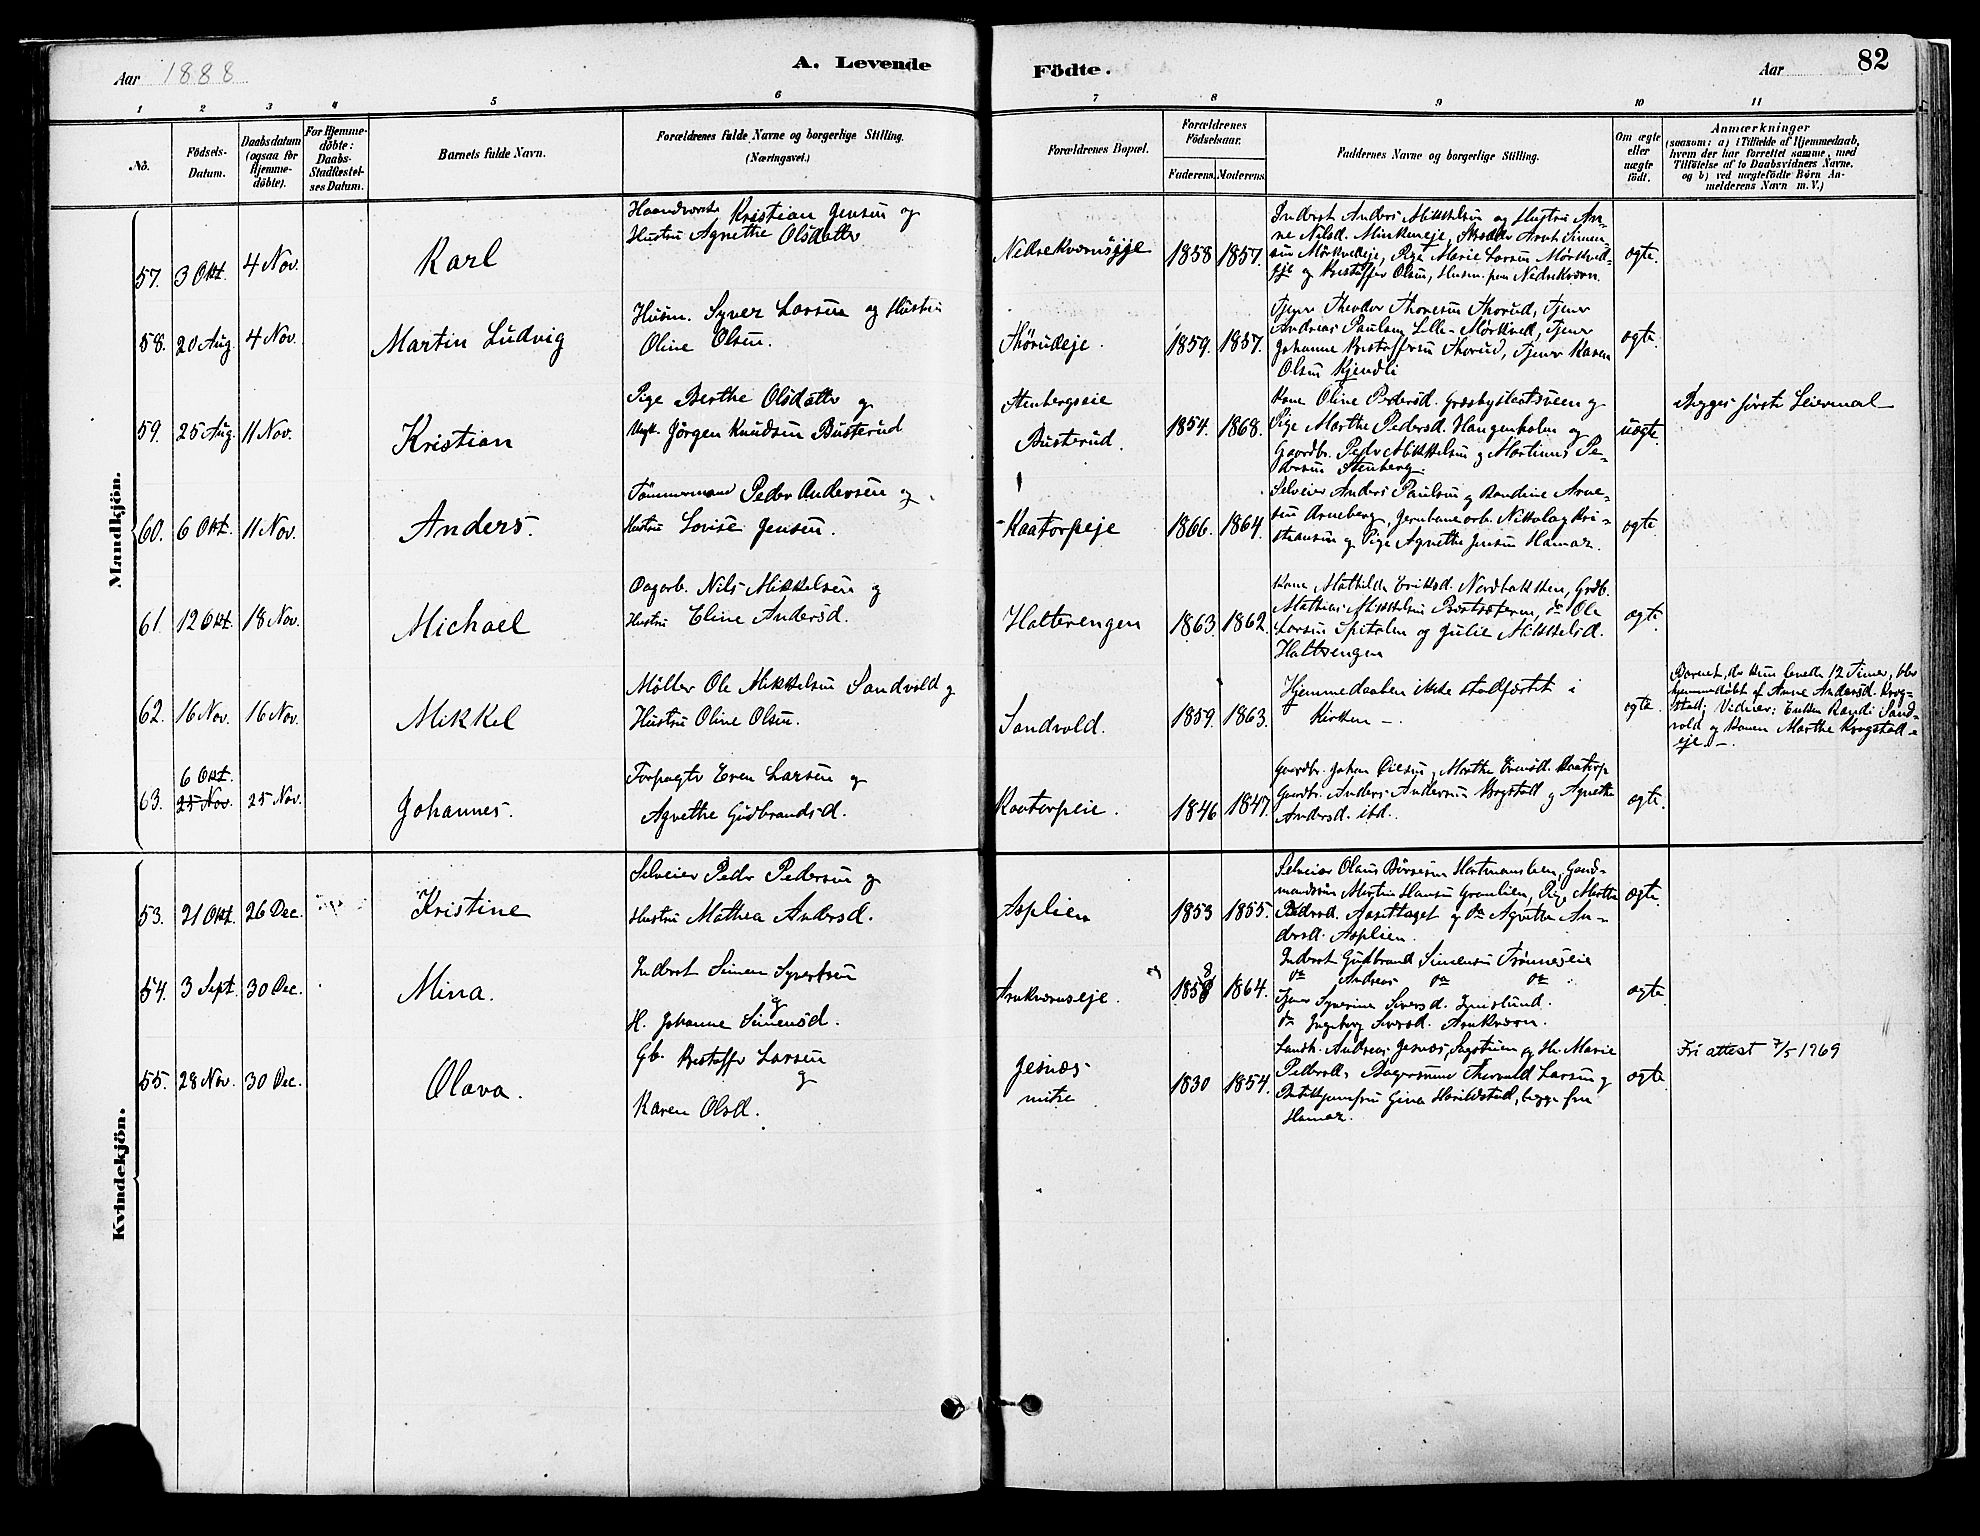 Aar 1888
A. Levende
Födte.
Aar
82
1 2 3 4 5 6 7 8 9 10 11
No.
Födsels-
Datum.
Daabsdatum
(ogsaa for
Hjemme-
döbte).
For Hjemme-
döbte:
Daabs-
Stadfæstel-
ses Datum.
Barnets fulde Navn.
Forældrenes fulde Navne og borgerlige Stilling.
(Næringsvei.)
Forældrenes Bopæl.
Forældrenes
Födselsaar.
Faderens.
Moderens.
Faddernes Navne og borgerlige Stilling.
Om ægte
eller
uægte
födt.
Anmærkninger
(saasom: a) i Tilfælde af Hjemmedaab,
hvem der har forrettet samme, med
Tilföielse af to Daabsvidners Navne,
og b) ved uægtefödte Börn An-
melderens Navn m. V.)
Mandkjön.
57. 3 Okt. 4 Nov. Karl
Kristian Jensen og
Hustru Agnethe Olsdatter
1858 1857.
Inderst Anders Mikkelsen og Hustru An-
ne Nilsd.
Pige Marie Larsen Mörkved-
eje og Kristoffer Olsen, Husm.
ægte.
58. 20 Aug. 4 Nov. Martin Ludvig
Husm. Syver Larsen og Hustru
Oline Olsen.
Thorudeje.
1859. 1857.
Tjener Theodor Thoresen Thorud, Tjener
Andreas Paulsen Lille-Mörkved, Tjener
Johanne Kristoffersen Thorud, Tjener Karen
Olsen Kjendli
ægte.
59. 25 Aug. 11 Nov. Kristian
Pige Berthe Olsdatter og
Ungk. Jörgen Knudsen Busterud
Stenbergseie
Busterud.
1854. 1868.
Kone Oline Pedersd. og
Pige Marthe Pedersd. Haugenholm og
Gaardbr. Peder Mikkelsen og Martinus Pe-
dersen Stenberg.
uægte.
Begges förste Leiermal
60. 6 Okt. 11 Nov. Anders.
Tömmermand Peder Andersen og
Hustru Lovise Jensen.
Kaatorpeje
1866. 1864.
Selveier Anders Paulsen og Randine Arne-
sen Arneberg, Jernbanearb. Nikolay Kri-
stiansen og Pige Agnethe Jensen Hamar.
ægte.
61. 12 Okt. 18 Nov. Michael
Dagarb. Nils Mikkelsen og
Hustru Eline Andersd.
Halterengen
1863. 1862.
Kone Mathilde Eriksd. Nordbakken, Grdb.
Mathias Mikkelsen
Larsen Spitalen og Julie Mikkelsd.
ægte.
62. 16 Nov. 16 Nov. Mikkel
Möller Ole Mikkelsen Sandvold og
Hustru Oline Olsen.
Sandvold.
1859. 1863.
Hjemmedaaben ikke stadfæstet i
Kirken —.
ægte.
Barnet, der kun levede 12 Timer, blev
hjemmedöbt af Anne Andersd. Krog-
stad; Vidner: Enken Randi Sand-
vold og Konen Marthe Krogstad-
eje. —.
63. 6 Okt. 25 Nov. 25 Nov. Johannes.
Forpagter Even Larsen og
Agnethe Gudbrandsd.
Kaatorpeie.
1846 1847.
Gaardbr. Johan Marthe Evensd. Kaatorp
Gaardbr. Anders Andersen Krogstad og Agnethe
Andersd. ibd.
ægte.
Kvindekjön.
53. 21 Okt. 26 Dec. Kristine
Selveier Peder Pedersen og
Hustru Mathea Andersd.
Asplien
1853 1855.
Selveier Olaus
Martin Hansen Granlien, Pige Marthe
Pedersd. og do Agnethe An-
dersd. Asplien.
ægte.
54. 3 Sept. 30 Dec. Mina.
Inderst Simen Syvertsen
og
H. Johanne Simensd.
Arnkværnseje.
1858 1864.
Inderst Gudbrand Simensen Trönneseie
do Andreas do do
Tjener Syverine Siversd.
do Ingeborg Siversd. Arnkværn.
ægte
55. 28 Nov. 30 Dec. Olava.
Gb. Kristoffer Larsen
og
Karen Olsd.
Jesnæs
nitre
1830 1854.
Landh. Andreas Jesnæs, og Hu. Marie
Thorvald Larsen og
Gina begge fra
Hamar.
ægte
Fri attest 7/5 1969